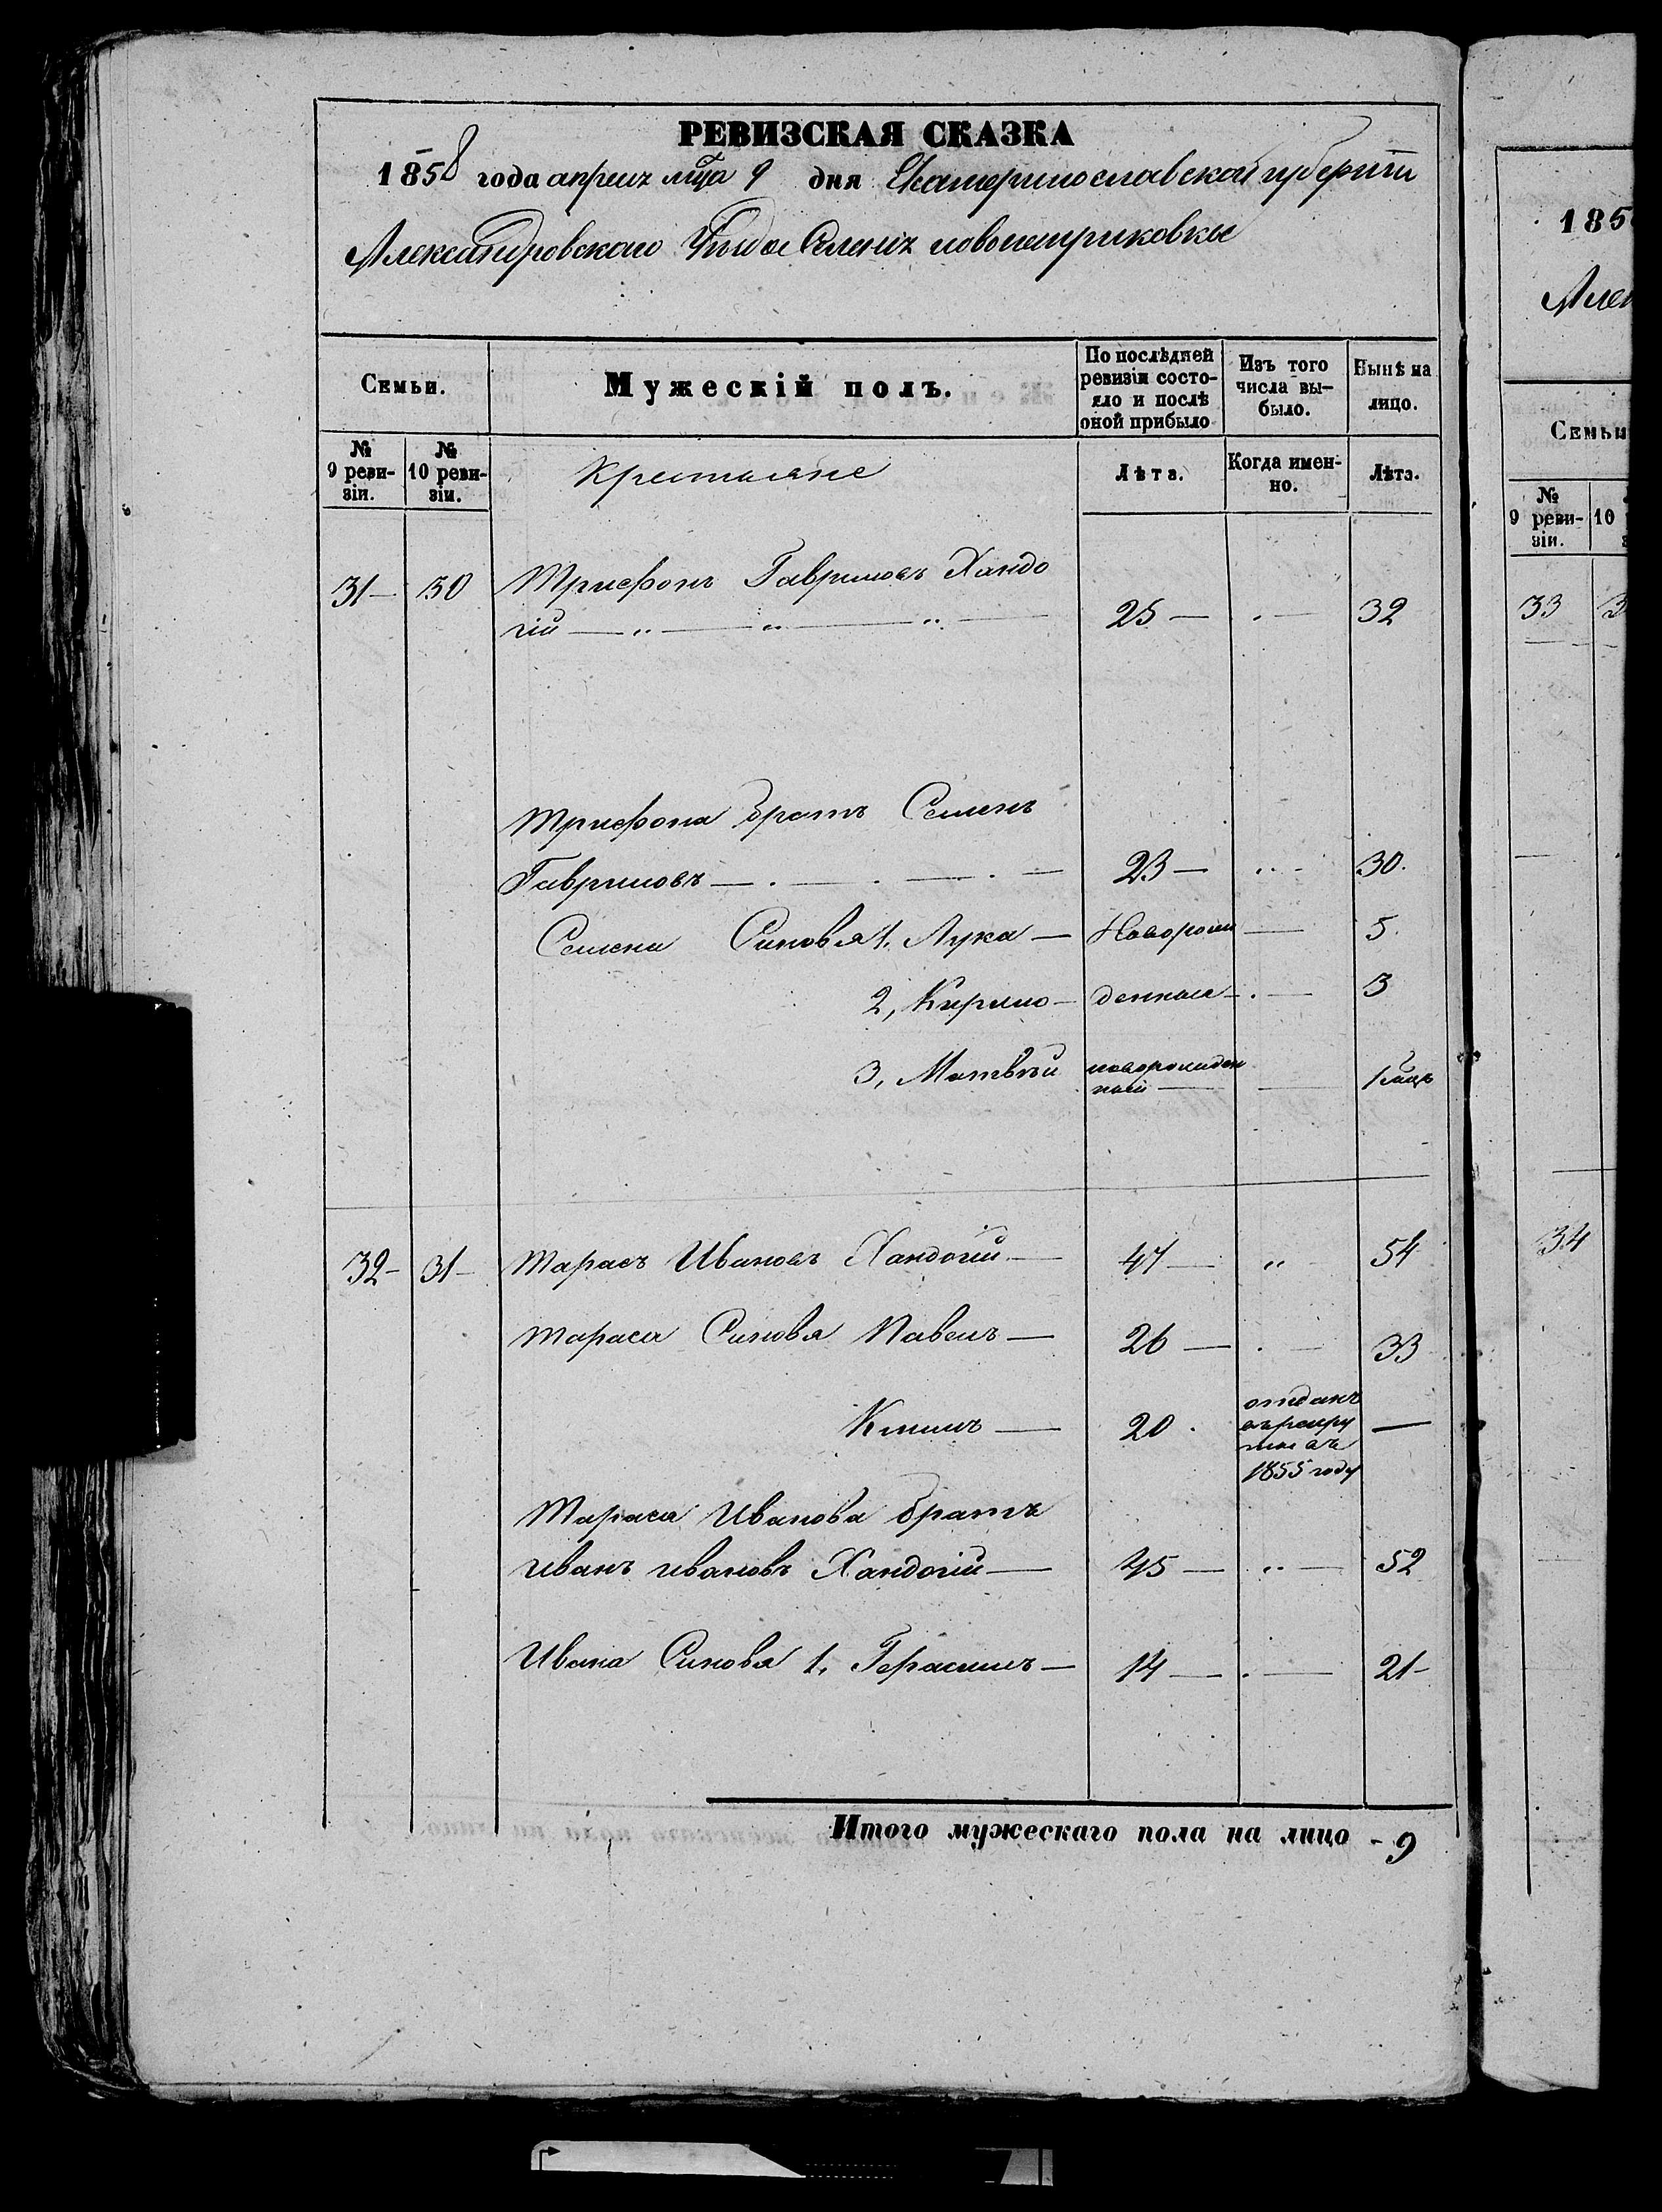 РЕВИЗСКАЯ СКАЗКА
1858 года апреля мца 9 дня Екатеринославской губерніи
Александровскаго Уезда Селенія новопетриковки
Семьи.
Мужескій полъ.
По послѣдней ревизіи состояло и послѣ оной прибыло
Изъ того числа выбыло.
Нынѣ на лицо.
№ 9 ревизіи.
№ 10 ревизіи.
Крестьяне
Лѣта.
Когда именно.
Лѣта.
31 30 Трифонъ Гавриловъ Хандо
гій 25 32
Трифона братъ Семенъ
Гавриловъ 23 30.
Семена Синовья 1. ЛукаНоворож 5.
2, Кирило денныя 3
3, Матвѣй новорожден
ный 1 мцъ
32 31 Тарасъ Ивановъ Хандогій 47 54
Тараса Синовя Павелъ 26 33
Климъ 20 отданъ
въ рекру
ты въ
1855 году
Тараса Иванова братъ
иванъ ивановъ Хандогій 45 52
Ивана Синовя 1, Герасимъ 14 21
Итого мужескаго пола на лицо - 9
185
Алек
Семьи
№ 9 ревизіи.
10
33 3
34